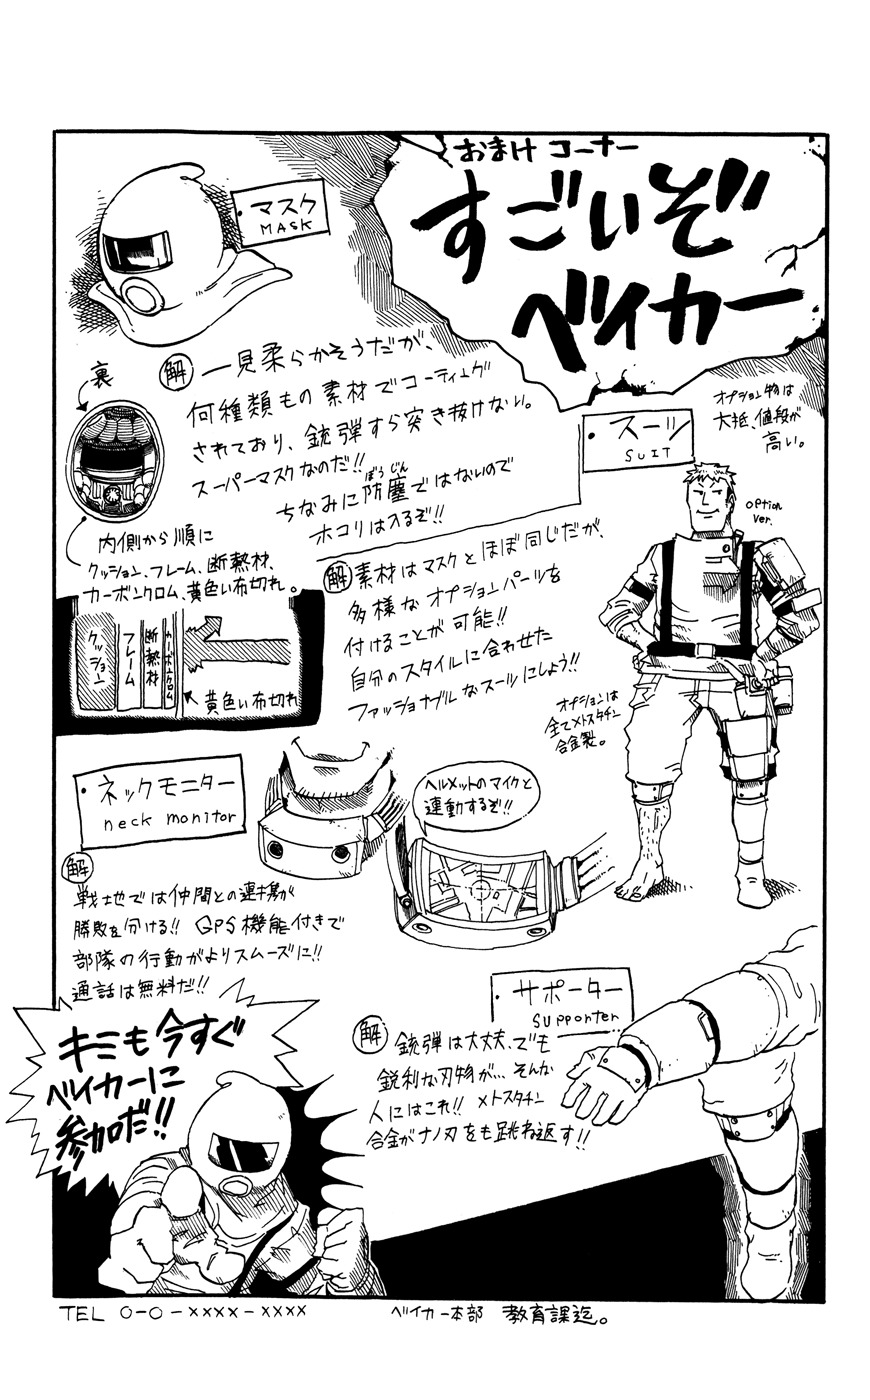 おまけコーナー
すごいぞ
ベイカー
・マスク
MASK
裏
解
一見柔らかそうだが、
何種類もの素材でコーティング
されており、銃弾すら突き抜けない。
スーパーマスクなのだ!!
ちなみに防塵ではないので
ぼうじん
ホコリは入るぞ!!
内側から順に
クッション、フレーム、断熱材、
カーボンクロム、黄色い布切れ。
クッション
フレーム
断熱材
カーボンクロム
黄色い布切れ
オプション物は
大抵、値段が
高い。
・スーツ
SUIT
option
ver.
解
素材はマスクとほぼ同じだが、
多様なオプションパーツを
付けることが可能!!
自分のスタイルに合わせた
ファッショナブルなスーツにしよう!!
オプションは
全てメトスタチン
合金製。
・ネックモニター
neck monitor
ヘルメットのマイクと
連動するぞ!!
解
戦地では仲間との連携が
勝敗を分ける!! GPS機能付きで
部隊の行動がよりスムーズに!!
通話は無料だ!!
・サポーター
supporter
解
銃弾は大丈夫、でも
鋭利な刃物が…そんな
人にはこれ!! メトスタチン
合金がナノ刃をも跳ね返す!!
キミも今すぐ
ベイカーに
参加だ!!
TEL 0-0-xxxx-xxxx
ベイカー本部 教育課迄。